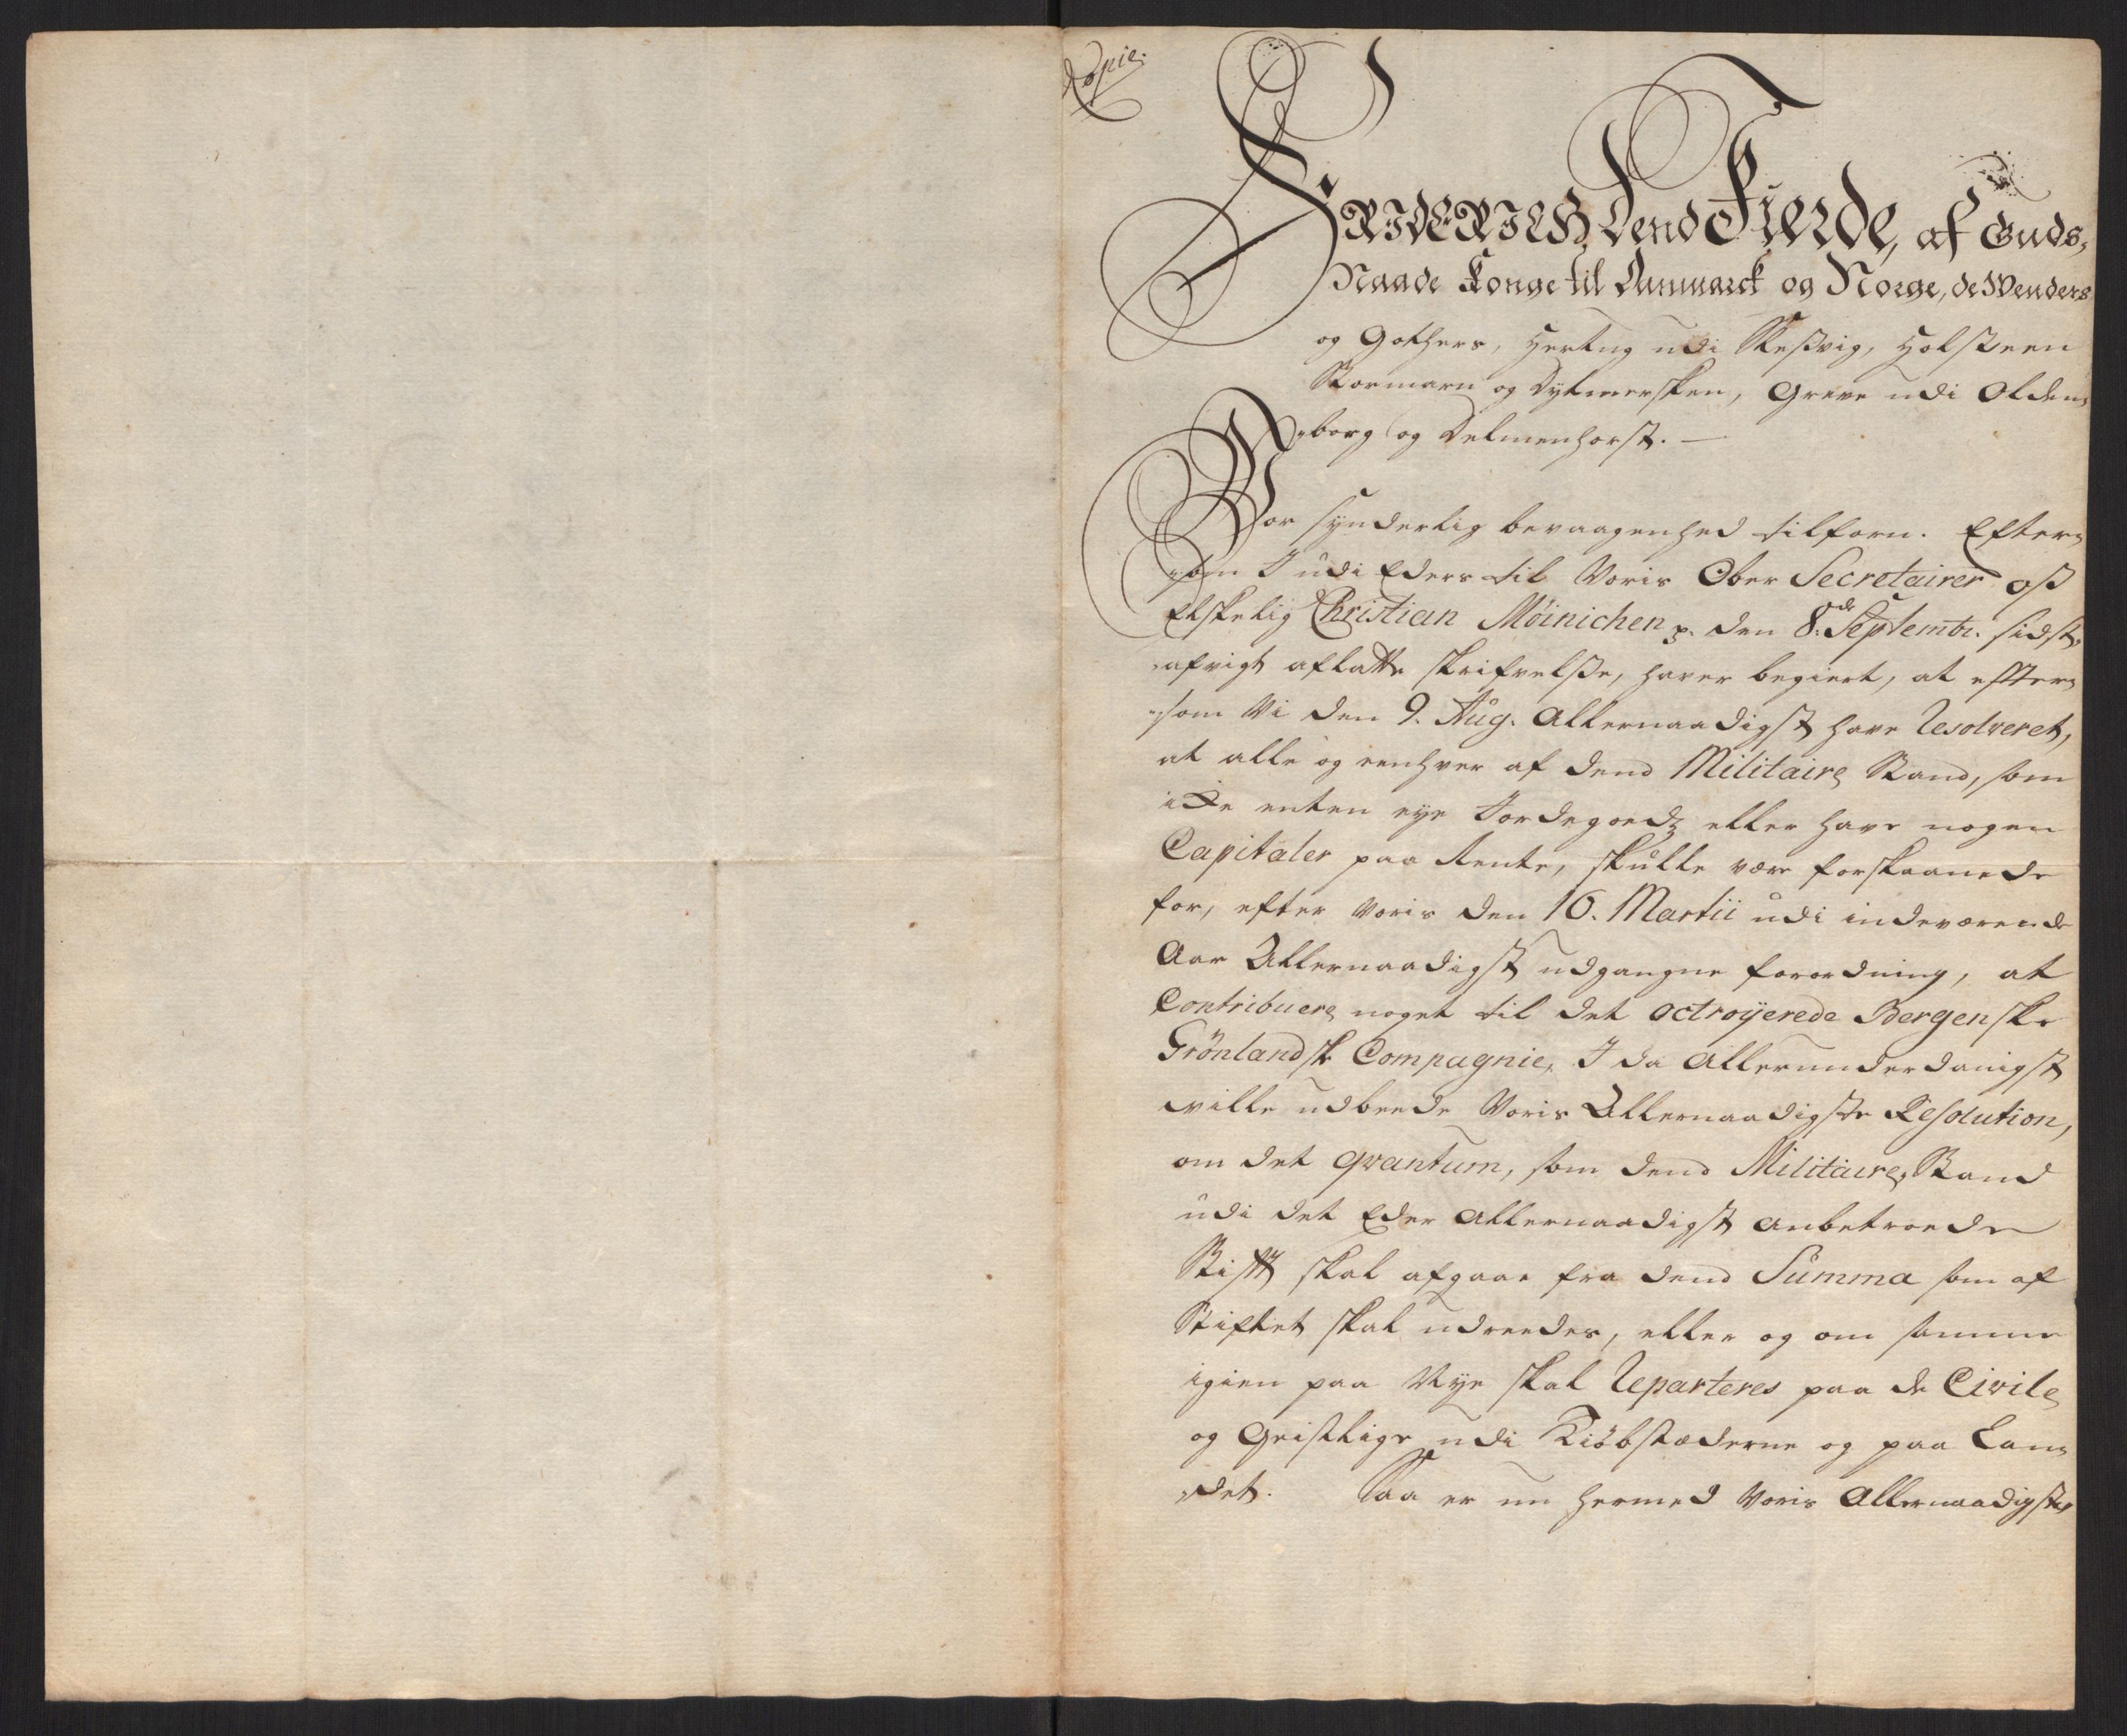 Copie.
FRIDERICH Dend Fierde, af Guds,
Naade Konge til Danmarck og Norge, de Wenders
og Gothers, Hertug udi Sleßvig, Holsteen
Stormarn og Dytmersken, Greve udi Olden,
„borg og Delmenhorst. —
Vor synderlig bevaagenhed tilforn. Efter,
„som I udi Eders til Voris Ober Secretairer oß
Elskelig Christian Möinichen p. den 8.de Septembr. sidst,
„afvigt afladte skrifvelße, haver begiert, at efter,
„som Vi den 9. Aug. Allernaadigst have Resolveret,
at alle og eenhver af dend Militaire Stand, som
icke enten eye Jordegoedz eller have nogen
Capitaler paa Rente, skulle være forskaanede
for, efter Voris den 16. Martii udi indeværende
Aar Allernaadigst udgangne forordning, at
Contribuere noget til det octroyerede Bergenske
Grönlandske Compagnie, I da Allerunderdanigst
ville udbeede Voris Allernaadigste Resolution,
om det qvantum, som dend Militaire Stand
udi det Eder Allernaadigst anbetroede
Stift skal afgaae fra dend Summa som af
Stiftet skal udreedes, eller og om samme
igien paa Nye skal Reparteres paa de Civile
og Geistlige udi Kiöbstæderne og paa Lan,
„det. Saa er nu hermed Voris Allernaadigste